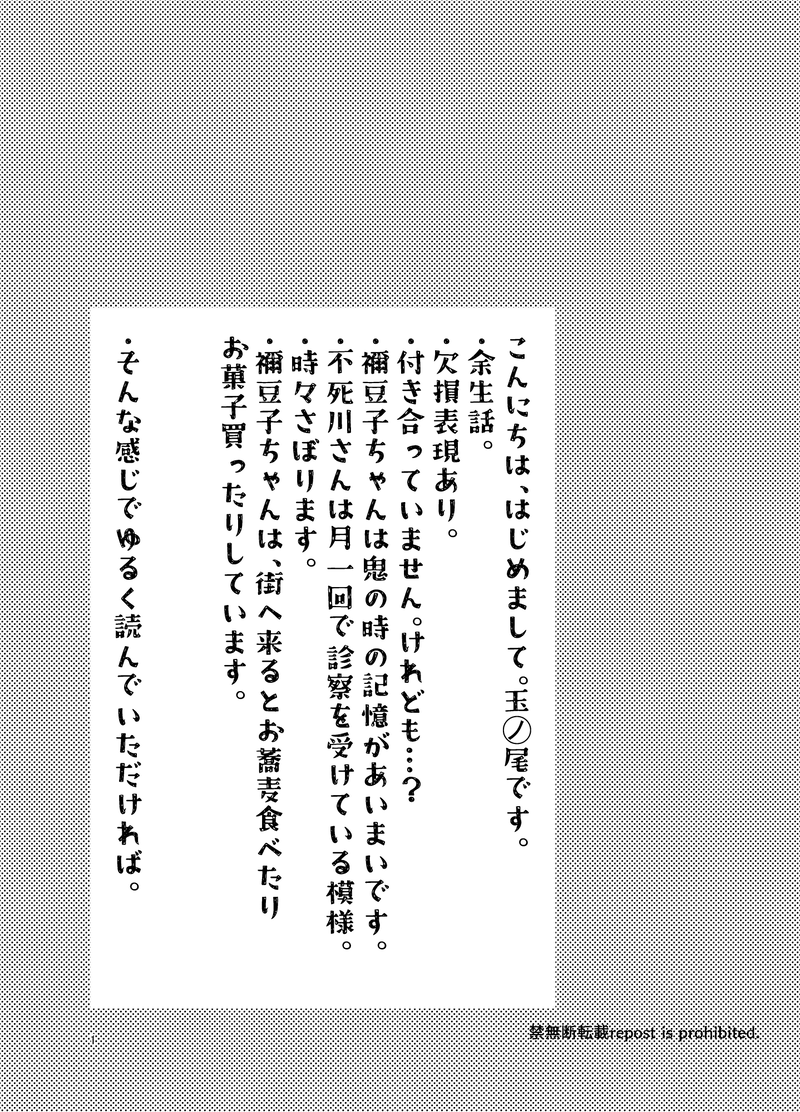 こんにちは、はじめまして。玉㋨尾です。
・余生話。
・欠損表現あり。
・付き合っていません。けれども…?
・禰豆子ちゃんは鬼の時の記憶があいまいです。
・不死川さんは月一回で診察を受けている模様。
・時々さぼります。
・禰豆子ちゃんは、街へ来るとお蕎麦食べたり
お菓子買ったりしています。
・そんな感じでゆるく読んでいただければ。
禁無断転載repost is prohibited.